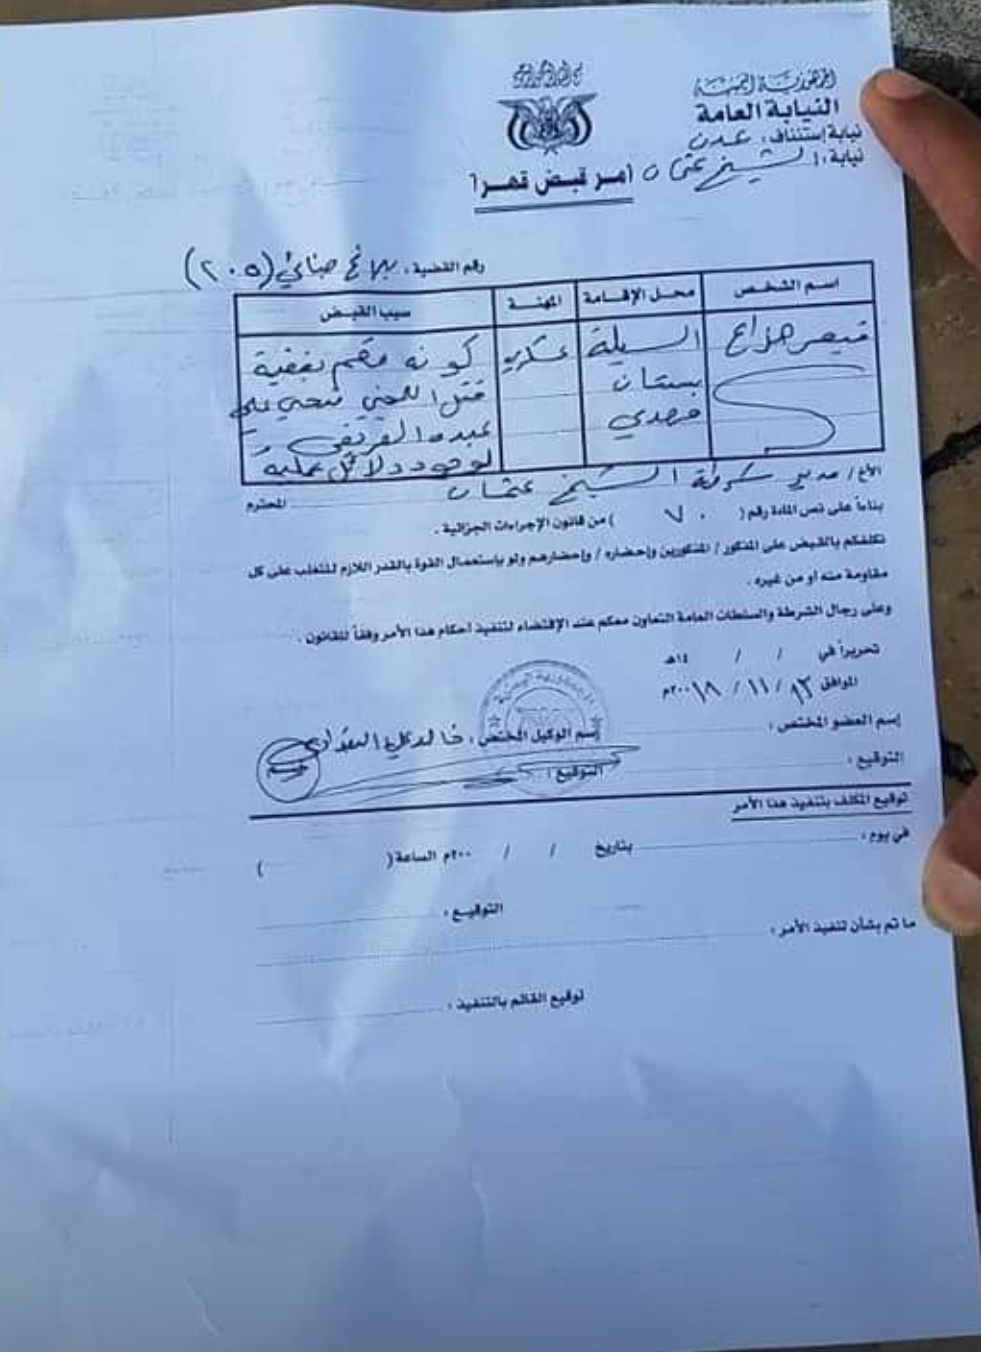 الجمهورية اليمنية
النيابة العامة
نيابة إستئناف: عدن
نيابة: الشيخ عثمان
أمر قبض قهرا
رقم القضية: بلاغ جنائي (٢٠٥)
اسم الشخص محل الإقامة المهنة سبب القبض
قيصر هزاع السيلة عسكري كونه متهم بقضية
بستان قتل المجني
مهدي عبده
لوجود دلائل عملية
الأخ / مدير شرطة الشيخ عثمان المحترم
بناءاً على نص المادة رقم ( ٧٠ ) من قانون الإجراءات الجزائية .
نكلفكم بالقبض على المذكور / المذكورين وإحضاره / وإحضارهم ولو بإستعمال القوة بالقدر اللازم للتغلب على كل
مقاومة منه أو من غيره .
وعلى رجال الشرطة والسلطات العامة التعاون معكم عند الإقتضاء لتنفيذ أحكام هذا الأمر وفقاً للقانون .
تحريراً في / / ١٤هـ
الموافق / ١١ / ٢٠٠١٨م
إسم العضو المختص : إسم الوكيل المختص : خالد علي
التوقيع : التوقيع :
توقيع المكلف بتنفيذ هذا الأمر
في يوم : بتاريخ / / ٢٠٠م الساعة ( )
التوقيع :
ما تم بشأن تنفيذ الأمر :
توقيع القائم بالتنفيذ :